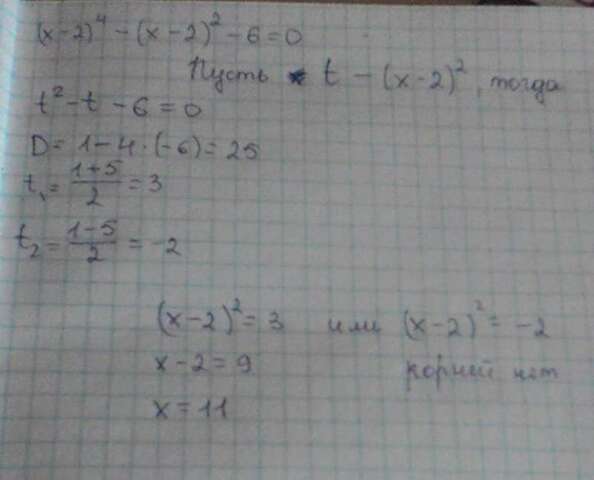 (x-2)⁴ - (x-2)² - 6 = 0
Пусть t - (x-2)², тогда
t² - t - 6 = 0
D = 1 - 4 · (-6) = 25
t₁ = (1+5)/2 = 3
t₂ = (1-5)/2 = -2
(x-2)² = 3 или (x-2)² = -2
x - 2 = 9 корней нет
x = 11